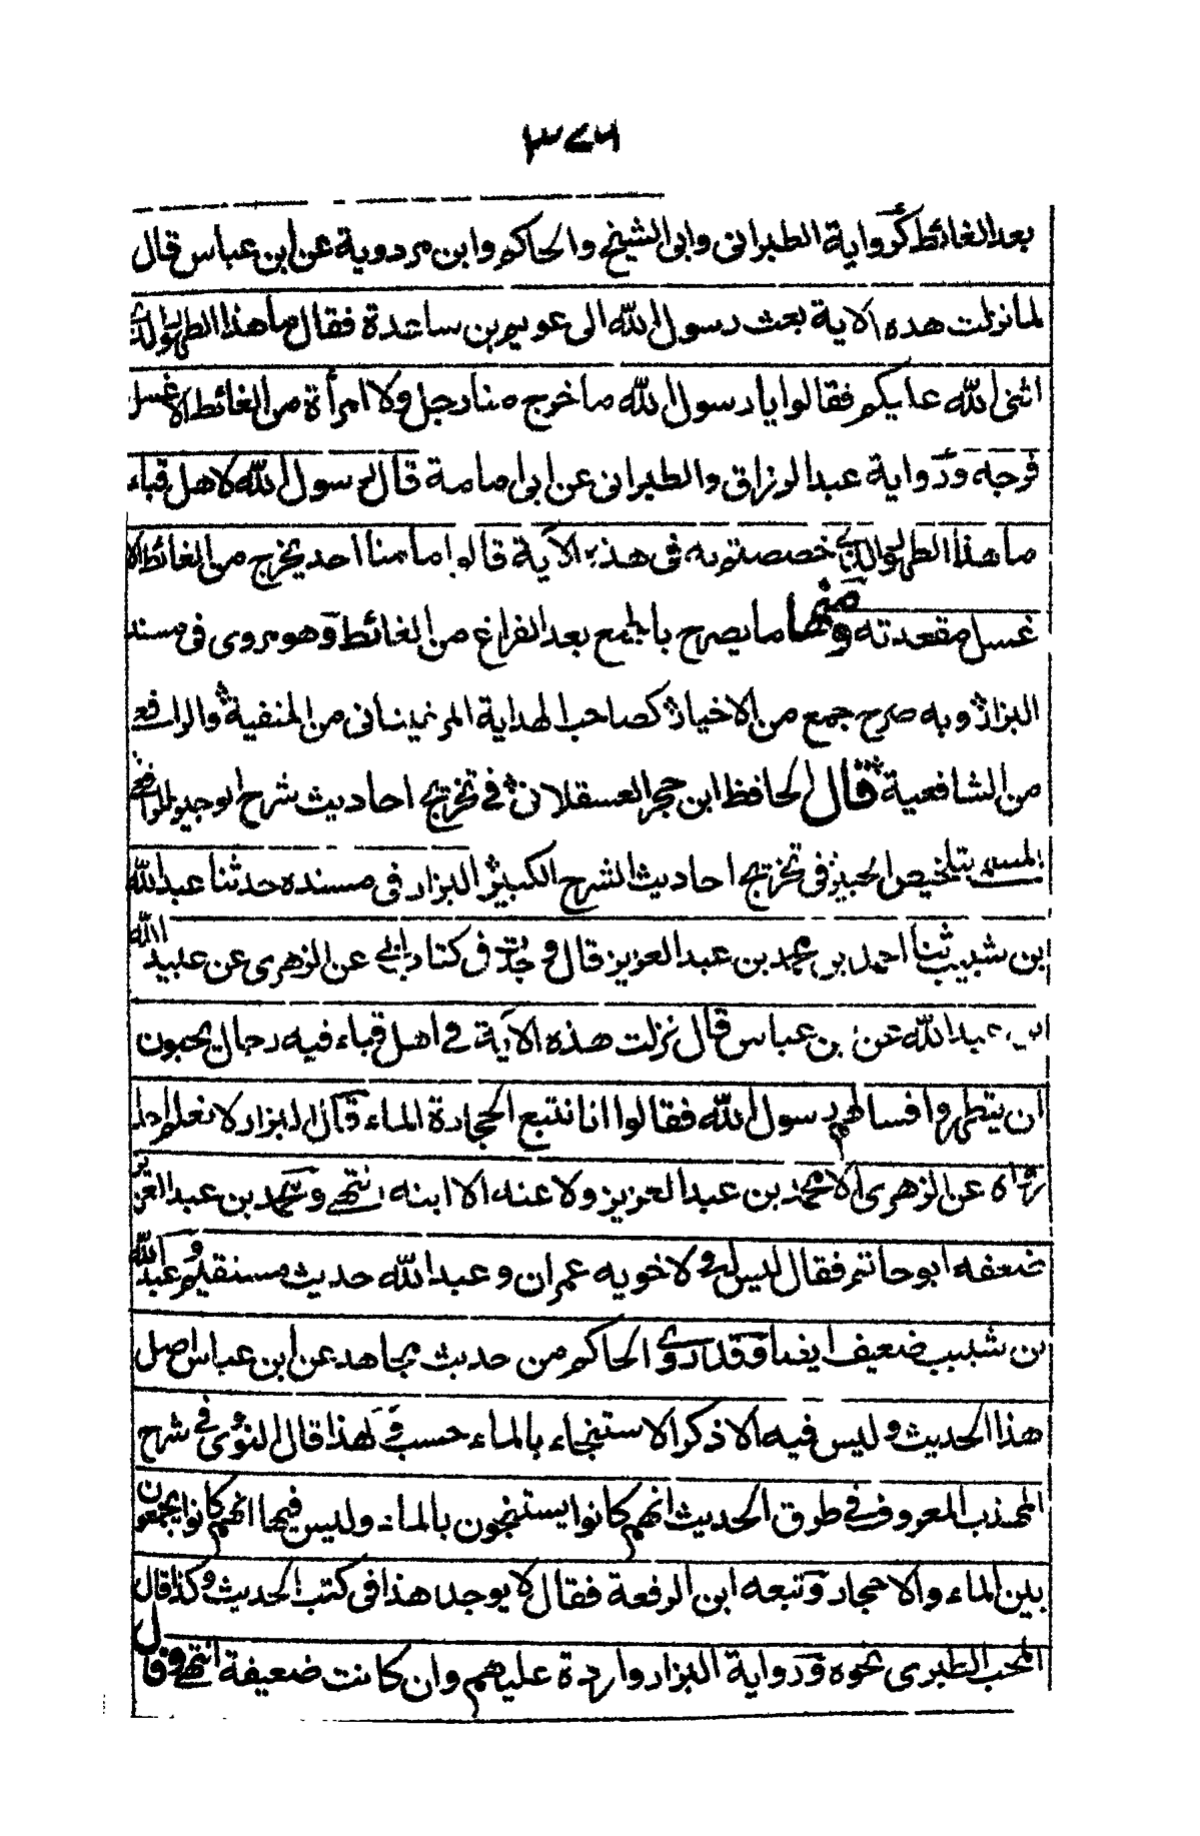 ٣٧٦
بعد الغائط كرواية الطبرانى وابى الشيخ والحاكم وابن مردوية عن ابن عباس قال
لما نزلت هذه الاية بعث رسول الله الى عويم بن ساعدة فقال ما هذا الطهور الذى
اثنى الله عليكم فقالوا يا رسول الله ما خرج منا رجل ولا امرأة من الغائط الا غسل
فرجه ورواية عبد الرزاق والطبرانى عن ابى امامة قال رسول الله لاهل قباء
ما هذا الطهور الذى خصصتم به فى هذه الآية قالوا ما منا احد يخرج من الغائط الا
غسل مقعدته ومنها ما يصرح بالجمع بعد الفراغ من الغائط وهو مروى فى مسند
البزار وبه صرح جمع من الاخيار كصاحب الهداية المرغينانى من الحنفية والرافعى
من الشافعية قال الحافظ ابن حجر العسقلانى فى تخريج احاديث شرح الوجيز للرافعى
المسمى بتلخيص الحبير فى تخريج احاديث الشرح الكبير البزار فى مسنده حدثنا عبد الله
ابن شبيب ثنا احمد بن محمد بن عبد العزيز قال وجدت فى كتاب ابى عن الزهرى عن عبيد الله
ابن عبد الله عن ابن عباس قال نزلت هذه الآية فى اهل قباء فيه رجال يحبون
ان يتطهروا فسالهم رسول الله فقالوا انا نتبع الحجارة الماء قال البزار لا نعلم احدا
رواه عن الزهرى الا محمد بن عبد العزيز ولا عنه الا ابنه انتهى ومحمد بن عبد العزيز
ضعفه ابو حاتم فقال ليس له ولاخويه عمران وعبد الله حديث مستقيم وعبد الله
بن شبيب ضعيف ايضا وقد روى الحاكم من حديث مجاهد عن ابن عباس اصل
هذا الحديث وليس فيه الا ذكر الاستنجاء بالماء حسب ولهذا قال النووى فى شرح
المهذب المعروف فى طرق الحديث انهم كانوا يستنجون بالماء وليس فيها انهم كانوا يجمعون
بين الماء والاحجار وتبعه ابن الرفعة فقال لا يوجد هذا فى كتب الحديث وكذا قال
المحب الطبرى نحوه ورواية البزار واردة عليهم وان كانت ضعيفة انتهى وقال